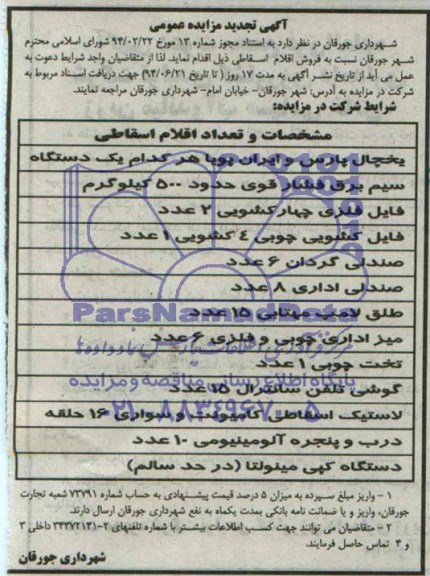 آگهی تجدید مزایده عمومی
شهرداری جورقان در نظر دارد به استناد مجوز شماره ۱۳ مورخ ۹۴/۰۲/۲۲ شورای اسلامی محترم
شهر جورقان نسبت به فروش اقلام اسقاطی ذیل اقدام نماید. لذا از متقاضیان واجد شرایط دعوت به
عمل می آید از تاریخ نشر آگهی به مدت ۱۷ روز ( تا تاریخ ۹۴/۰۶/۲۱) جهت دریافت اسناد مربوط به
شرکت در مزایده به آدرس: شهر جورقان- خیابان امام- شهرداری جورقان مراجعه نمایند.
شرایط شرکت در مزایده:
مشخصات و تعداد اقلام اسقاطی
یخچال پارس و ایران پویا هر کدام یک دستگاه
سیم برق فشار قوی حدود ۵۰۰ کیلوگرم
فایل فلزی چهار کشویی ۲ عدد
فایل کشویی چوبی ٤ کشویی ۱ عدد
صندلی گردان ۶ عدد
صندلی اداری ۸ عدد
طلق لامپ مهتابی ۱۵ عدد
ParsNamadData
میز اداری چوبی و فلزی ۶ عدد
تخت چوبی ۱ عدد
گوشی تلفن سانترال ۱۵ عدد
پایگاه اطلاع رسانی مناقصه و مزایده
لاستیک اسقاطی کامیونت و سواری ۱۶ حلقه
۰۲۱-۸۸۳۴۹۶۷۰-۵
درب و پنجره آلومینیومی ۱۰ عدد
دستگاه کپی مینولتا (در حد سالم)
۱ - واریز مبلغ سپرده به میزان ۵ درصد قیمت پیشنهادی به حساب شماره ۷۳۷۹۱ شعبه تجارت
جورقان، واریز و یا ضمانت نامه بانکی بمدت یکماه به نفع شهرداری جورقان ارسال دارند.
۲ - متقاضیان می توانند جهت کسب اطلاعات بیشتر با شماره تلفنهای ۲-۳۴۳۷۲۱۳۱ داخلی ۳
و ۴ تماس حاصل فرمایند.
شهرداری جورقان